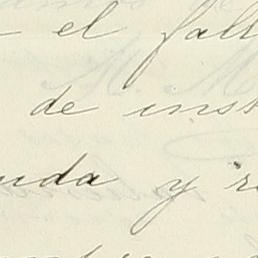 el fall
de inst
uda y r